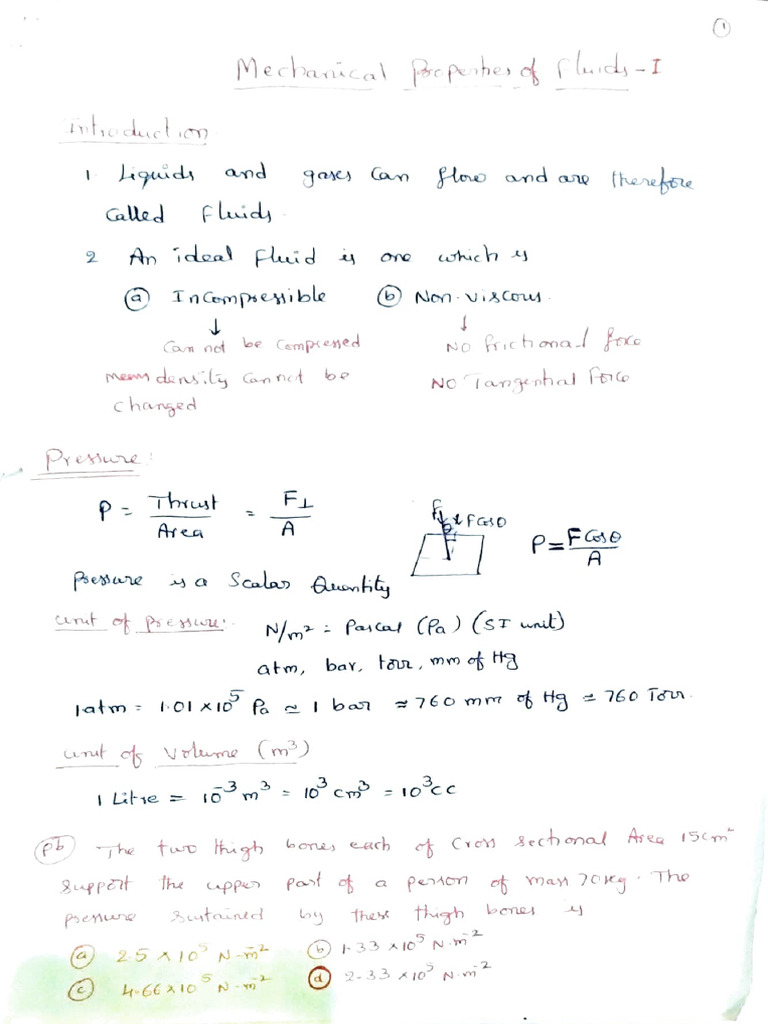 1
Mechanical Properties of Fluids - I
Introduction
1. Liquids and gases can flow and are therefore
called fluids.
2 An ideal fluid is one which is
(a) Incompressible (b) Non-viscous.
↓ ↓
Can not be compressed No frictional force
means density cannot be No Tangential Force
changed
Pressure:
P = Thrust/Area = F⊥/A
F θ F cosθ
P = F cosθ/A
pressure is a Scalar Quantity
unit of pressure: N/m² = Pascal (Pa) (SI unit)
atm, bar, torr, mm of Hg
1 atm = 1.01 × 10⁵ Pa ≃ 1 bar ≈ 760 mm of Hg = 760 Torr.
unit of Volume (m³)
1 Litre = 10⁻³ m³ = 10³ cm³ = 10³ cc
(Pb) The two thigh bones each of Cross sectional Area 15cm²
support the upper part of a person of mass 70kg. The
pressure sustained by these thigh bones is
(a) 2.5 × 10⁵ N-m⁻² (b) 1.33 × 10⁵ N.m⁻²
(c) 4.66 × 10⁵ N-m⁻² (d) 2.33 × 10⁵ N.m⁻²